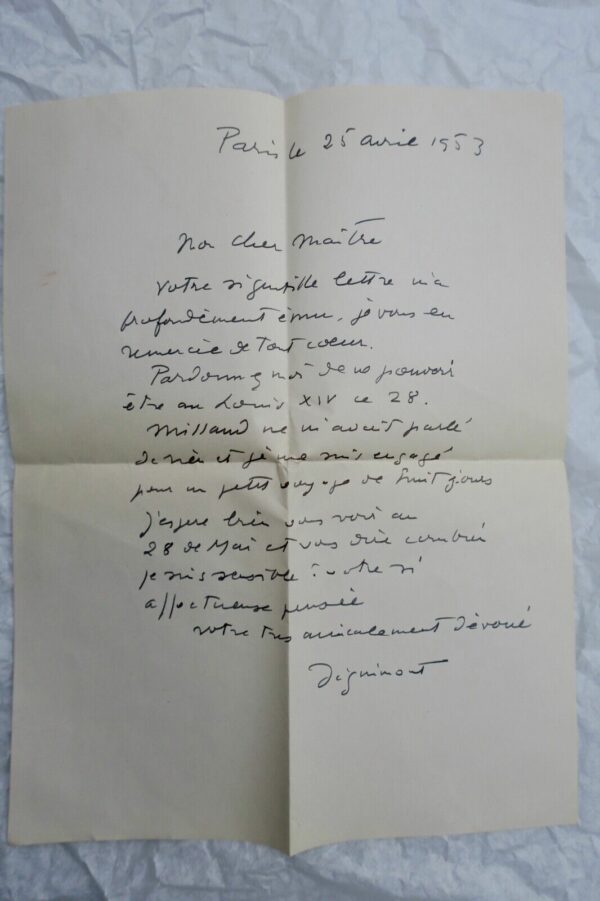 Paris le 25 avril 1953
Mon cher Maître
votre si gentille lettre m'a
profondément ému, je vous en
remercie de tout coeur.
Pardonnez moi de ne pouvoir
être au Louis XIV ce 28.
Millaud ne m'avait parlé
de rien et je me suis engagé
pour un petit voyage de huit jours
J'espère bien vous voir au
28 de Mai et vous dire combien
je suis sensible à votre si
affectueuse pensée
votre très amicalement dévoué
Dignimont